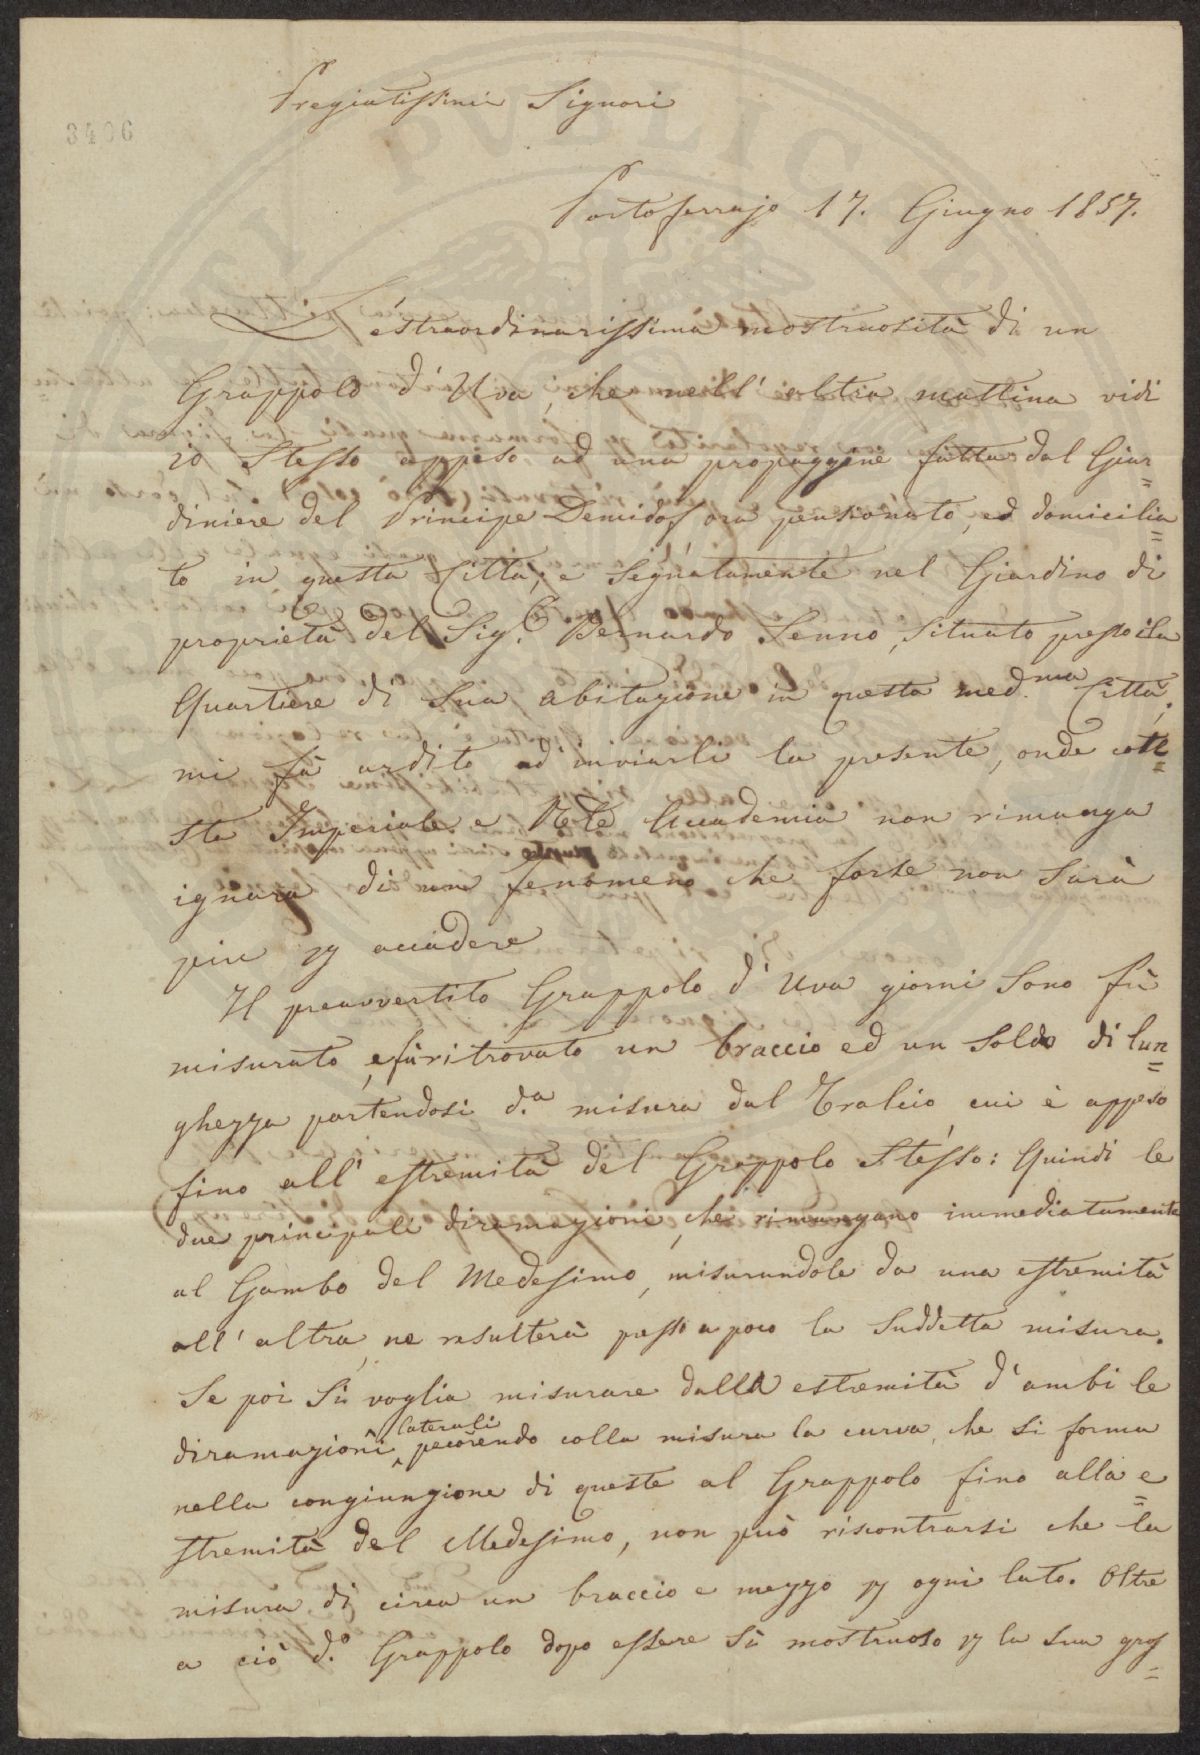 Pregiatissimi Signori
3406
Portoferrajo 17. Giugno 1857.
L'estraordinarissima mostruosità di un
Grappolo d'Uva, che nell'altra mattina vidi
io stesso appeso ad una propaggine fatta dal Giar=
diniere del Principe Demidof ora pensionato, ed domicilia=
to in questa Città, e segnatamente nel Giardino di
proprietà del Sig.e Bernardo Senno, situato presso il
Quartiere di Sua abitazione in questa med.ma Città,
mi fà ardito ad inviarli la presente, onde cote=
sta Imperiale e Rele Accademia non rimanga
ignara di un fenomeno che forse non sarà
piu p accadere
Il preavvertito Grappolo d'Uva giorni sono fù
misurato, e fù ritrovato un braccio ed un soldo di lun=
ghezza partendosi d.a misura dal Tralcio cui è appeso
fino all'estremità del Grappolo stesso: Quindi le
due principali diramazioni, che rimangano immediatamente
al Gambo del Medesimo, misurandole da una estremità
all'altra, ne resulterà presso a poco la suddetta misura.
Se poi si voglia misurare dalla estremità d'ambi le
diramazioni laterali pecorendo colla misura la curva, che si forma
nella congiunzione di queste al Grappolo fino alla e=
stremità del Medesimo, non può riscontrarsi che la
misura di circa un braccio e mezzo p ogni lato. Oltre
a ciò d.o Grappolo dopo essere sì mostruoso p la sua gros=